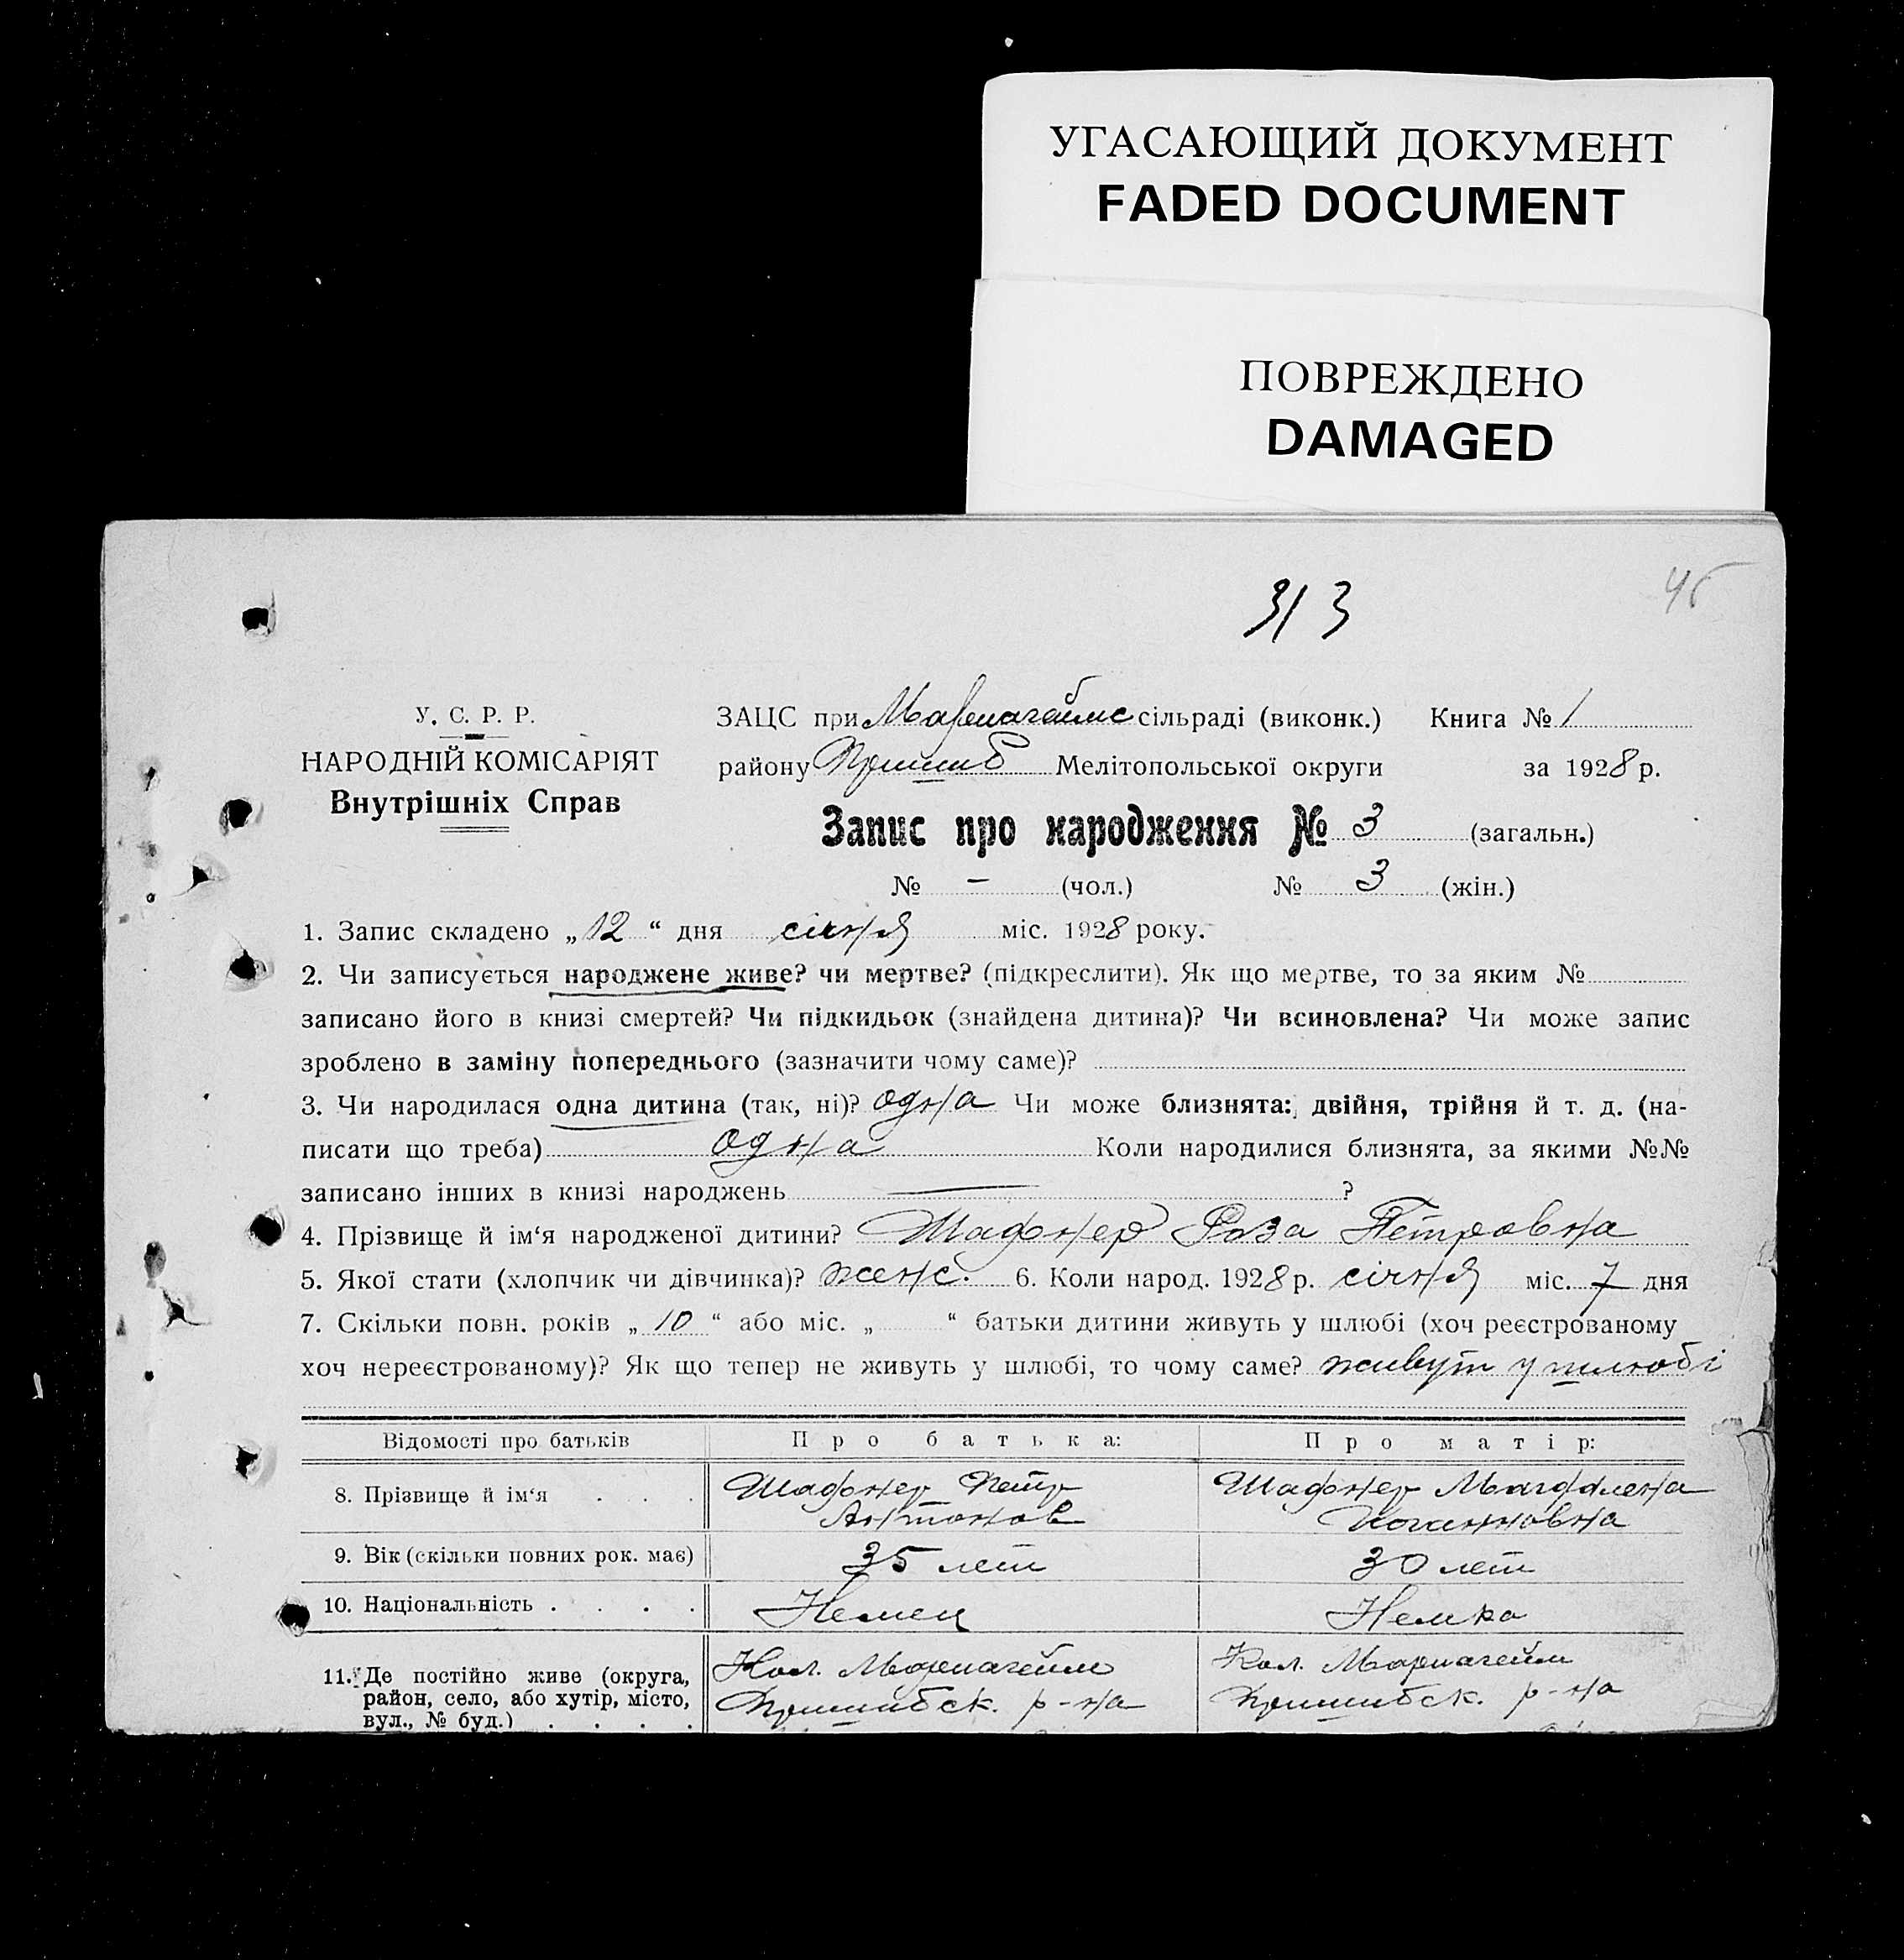 УГАСАЮЩИЙ ДОКУМЕНТ
FADED DOCUMENT
ПОВРЕЖДЕНО
DAMAGED
3/3
У. С. Р. Р.
НАРОДНІЙ КОМІСАРІЯТ
Внутрішніх Справ
ЗАЦС при сільраді (виконк.) Книга № 1
району Пришиб Мелітопольської округи за 1928 р.
Запис про народження № 3 (загальн.)
№ – (чол.) № 3 (жін.)
1. Запис складено „12“ дня січня міс. 1928 року.
2. Чи записується народжене живе? чи мертве? (підкреслити). Як що мертве, то за яким №
записано його в книзі смертей? Чи підкидьок (знайдена дитина)? Чи всиновлена? Чи може запис
зроблено в заміну попереднього (зазначити чому саме)?
3. Чи народилася одна дитина (так, ні)? одна Чи може близнята: двійня, трійня й т. д. (на-
писати що треба) одна Коли народилися близнята, за якими №№
записано інших в книзі народжень — ?
4. Прізвище й ім‘я народженої дитини? Шафнер Роза Петровна
5. Якої стати (хлопчик чи дівчинка)? женс. 6. Коли народ. 1928 р. січня міс. 7 дня
7. Скільки повн. років „10“ або міс. „ “ батьки дитини живуть у шлюбі (хоч реєстрованому
хоч нереєстрованому)? Як що тепер не живуть у шлюбі, то чому саме? живут у шлюбі
Відомості про батьків Про батька: Про матір:
8. Прізвище й ім‘я . . . Шафнер Петр Шафнер Магдалена
Антонов Иоганновна
9. Вік (скільки повних рок. має) 35 лет 30 лет
10. Національність . . . . Немец Немка
11. Де постійно живе (округа, Кол. Мариагейм Кол. Мариагейм
район, село, або хутір, місто, Пришибск. р-на Пришибск. р-на
вул., № буд.) . . . .